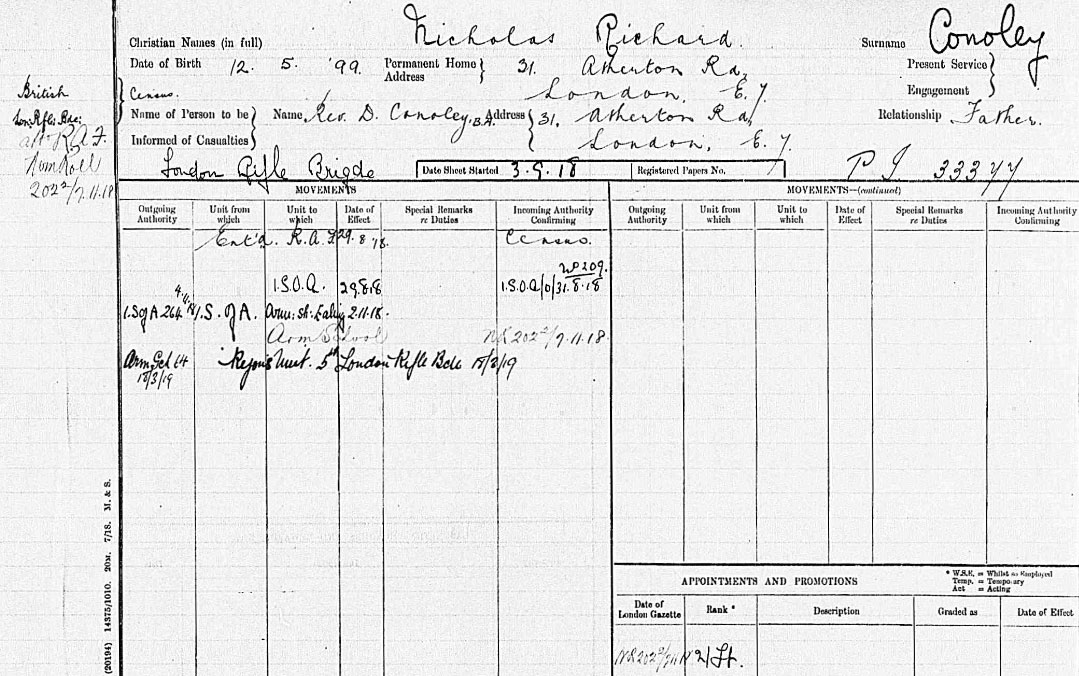 Christian Names (in full) Nicholas Richard. Surname Conoley
Date of Birth 12. 5. '99. Permanent Home Address } 31. Atherton Rd, London, E. 7. Present Service } Engagement
Census.
Name of Person to be Informed of Casualties } Name, Rev. D. Conoley, B.A. Address { 31, Atherton Rd, London, E. 7. Relationship Father.
British
Lon: Rifle: Bde:
att R.A.F.
Nom Roll
202²/7.11.18
London Rifle Brigde Date Sheet Started 3.9.18 Registered Papers No. P I 33377
MOVEMENTS
MOVEMENTS—(continued)
Outgoing Authority Unit from which Unit to which Date of Effect Special Remarks re Duties Incoming Authority Confirming
Outgoing Authority Unit from which Unit to which Date of Effect Special Remarks re Duties Incoming Authority Confirming
Ent'd. R.A.F 29.8.18. Census.
I.S.O.A. 29.8.18 209. I.S.O.A/0/31.8.18
I.S of A 264 I.S. of A. Arm: Sch: Ealing 2.11.18.
Arm School NR 202²/7.11.18
Arm Sch 14 18/3/19 Rejoins Unit. 5th London Rifle Bde 18/3/19
(20194) 14375/1010. 20M. 7/18. M. & S.
APPOINTMENTS AND PROMOTIONS
* W.S.E. = Whilst so Employed
Temp. = Temporary
Act = Acting
Date of London Gazette Rank * Description Graded as Date of Effect
NR 202²/7.11.18 2/Lt.